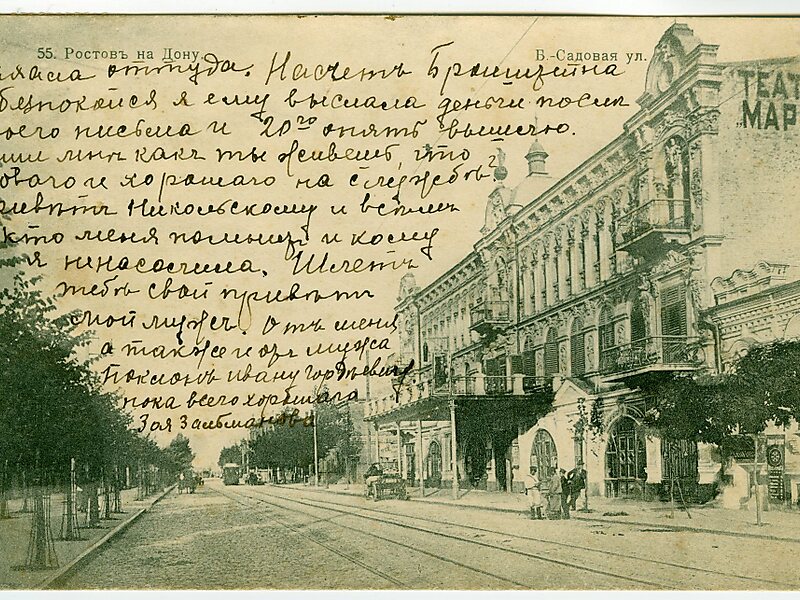 55. Ростовъ на Дону.
Б.-Садовая ул.
ТЕАТ
МАР
оттуда. Насчетъ Бронштейна
я ему выслала деньги после
письма и 20го опять вышлю.
мнѣ какъ ты живешь, что
и хорошаго на службѣ?
Никольскому и всѣмъ
кто меня помнитъ и кому
я ненасолила. Шлетъ
тебѣ свой привѣтъ
мой мужъ. Отъ меня
а также и отъ мужа
Поклонъ Ивану Гордѣевичу
пока всего хорошаго
Зоя